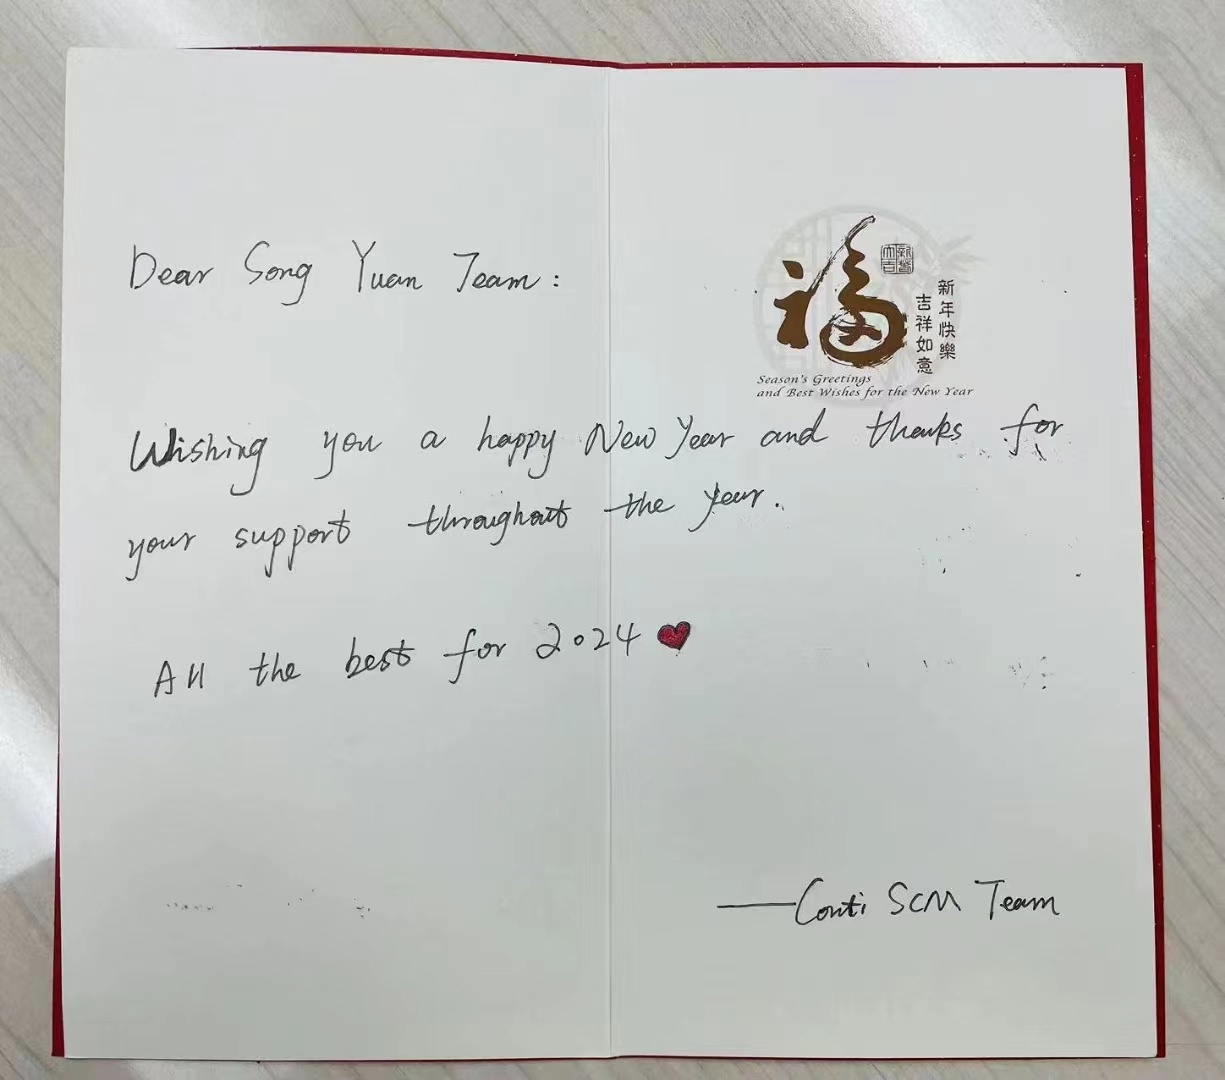 Dear Song Yuan Team:
福
新春
大吉
新年快樂
吉祥如意
Season's Greetings
and Best Wishes for the New Year
Wishing you a happy New Year and thanks for
your support throughout the year.
All the best for 2024
——Conti SCM Team